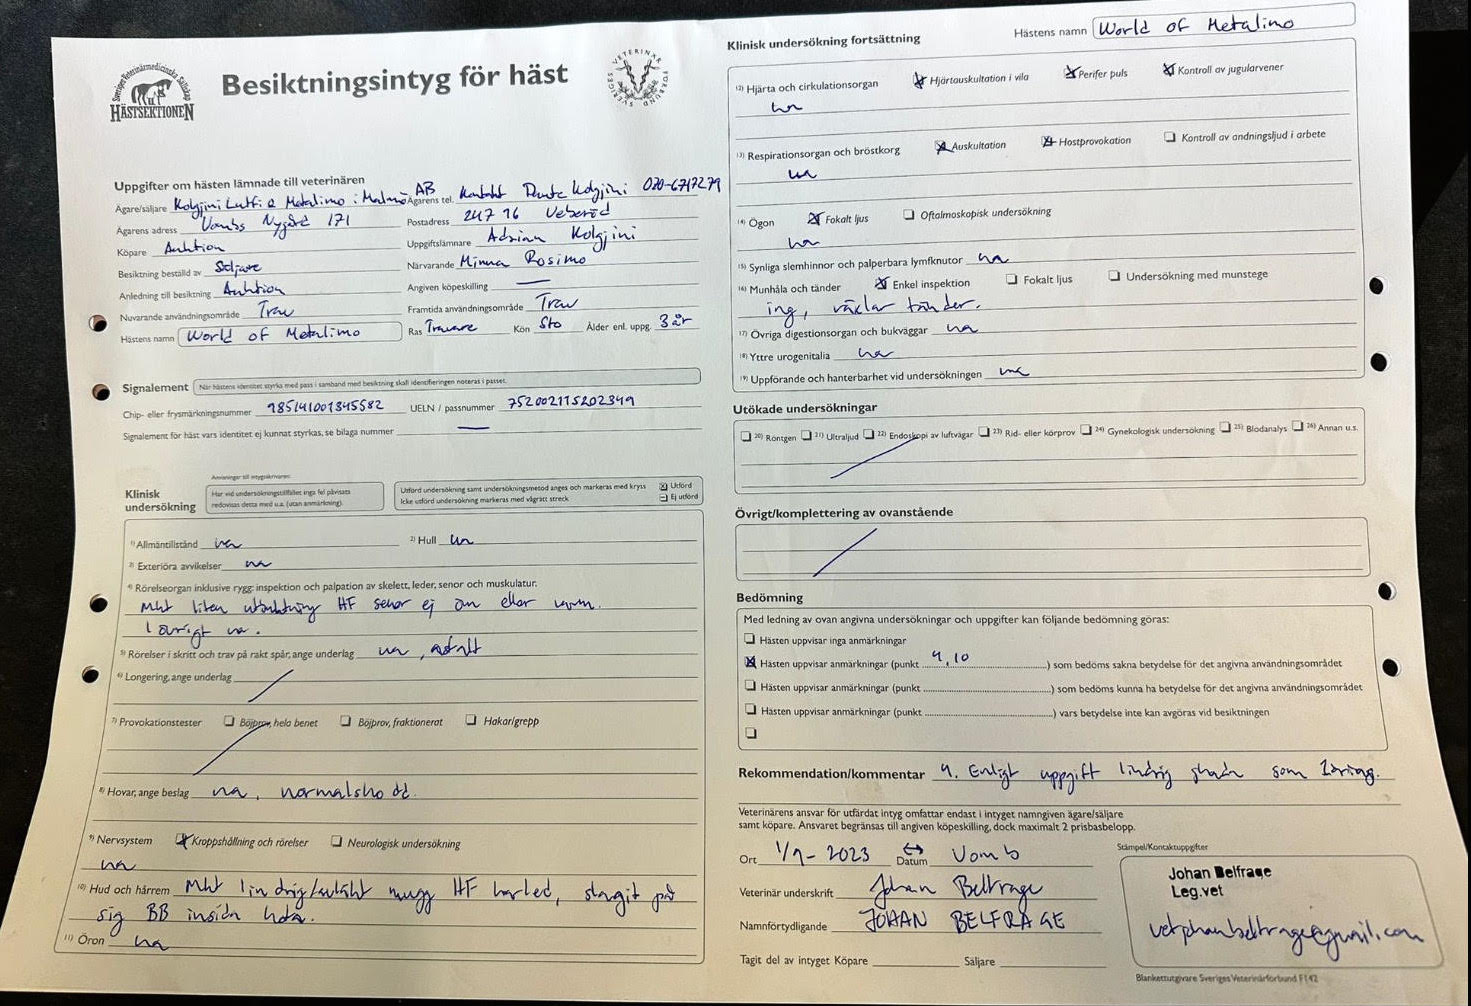 Besiktningsintyg för häst
Sveriges Veterinärmedicinska Sällskap
HÄSTSEKTIONEN
SVERIGES VETERINÄRFÖRBUND
Uppgifter om hästen lämnade till veterinären
Ägare/säljare Kolgjini Lutfi & Metalimo i Malmö AB Ägarens tel. Kontakt Dante Kolgjini
Ägarens adress Vombs Nygård 171 Postadress 247 96 Veberöd
Köpare Auktion Uppgiftslämnare Adrian Kolgjini
Besiktning beställd av Säljare Närvarande Minna Rosimo
Anledning till besiktning Auktion Angiven köpeskilling —
Nuvarande användningsområde Trav Framtida användningsområde Trav
Hästens namn World of Metalimo Ras Travare Kön Sto Ålder enl. uppg. 3 år
Signalement När hästens identitet styrks med pass i samband med besiktning skall identifieringen noteras i passet.
Chip- eller frysmärkningsnummer 985141001845582 UELN / passnummer 752002115202349
Signalement för häst vars identitet ej kunnat styrkas, se bilaga nummer —
Klinisk undersökning
Anvisningar till intygsskrivaren:
Har vid undersökningstillfället inga fel påvisats
redovisas detta med u.a. (utan anmärkning).
Utförd undersökning samt undersökningsmetod anges och markeras med kryss Utförd
Icke utförd undersökning markeras med vågrätt streck Ej utförd
1) Allmäntillstånd ua 2) Hull ua
3) Exteriöra avvikelser ua
4) Rörelseorgan inklusive rygg: inspektion och palpation av skelett, leder, senor och muskulatur.
Mkt liten utbuktning HF senor ej öm eller varm.
I övrigt ua.
5) Rörelser i skritt och trav på rakt spår, ange underlag ua, asfalt
6) Longering, ange underlag
7) Provokationstester Böjprov, hela benet Böjprov, fraktionerat Hakar/grepp
8) Hovar, ange beslag ua, normalskodd.
9) Nervsystem Kroppshållning och rörelser Neurologisk undersökning
ua
10) Hud och hårrem Mkt lindrig/avläkt mugg HF karled, slagit på
sig BB insida hota.
11) Öron ua
Klinisk undersökning fortsättning Hästens namn World of Metalimo
12) Hjärta och cirkulationsorgan Hjärtauskultation i vila Perifer puls Kontroll av jugularvener
ua
13) Respirationsorgan och bröstkorg Auskultation Hostprovokation Kontroll av andningsljud i arbete
ua
14) Ögon Fokalt ljus Oftalmoskopisk undersökning
ua
15) Synliga slemhinnor och palperbara lymfknutor ua
16) Munhåla och tänder Enkel inspektion Fokalt ljus Undersökning med munstege
ing, växlar tänder.
17) Övriga digestionsorgan och bukväggar ua
18) Yttre urogenitalia ua
19) Uppförande och hanterbarhet vid undersökningen ua
Utökade undersökningar
20) Röntgen 21) Ultraljud 22) Endoskopi av luftvägar 23) Rid- eller körprov 24) Gynekologisk undersökning 25) Blodanalys 26) Annan u.s.
Övrigt/komplettering av ovanstående
Bedömning
Med ledning av ovan angivna undersökningar och uppgifter kan följande bedömning göras:
Hästen uppvisar inga anmärkningar
Hästen uppvisar anmärkningar (punkt 4, 10) som bedöms sakna betydelse för det angivna användningsområdet
Hästen uppvisar anmärkningar (punkt) som bedöms kunna ha betydelse för det angivna användningsområdet
Hästen uppvisar anmärkningar (punkt) vars betydelse inte kan avgöras vid besiktningen
Rekommendation/kommentar 4. Enligt uppgift lindrig skada som 1åring.
Veterinärens ansvar för utfärdat intyg omfattar endast i intyget namngiven ägare/säljare
samt köpare. Ansvaret begränsas till angiven köpeskilling, dock maximalt 2 prisbasbelopp.
Ort 1/9-2023 Datum Vomb
Veterinär underskrift Johan Belfrage
Namnförtydligande JOHAN BELFRAGE
Tagit del av intyget Köpare Säljare
Stämpel/Kontaktuppgifter
Johan Belfrage
Leg.vet
Blankettutgivare Sveriges Veterinärförbund F142